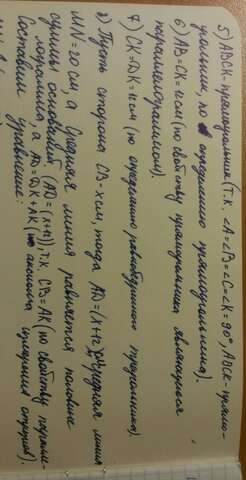 5) ABCK - прямоугольник (т.к. ∠A=∠B=∠C=∠K=90°, ABCK - прямо-
угольник, по определению прямоугольника).
6) AB=CK=12см (по свойству прямоугольника являющегося
параллелограммом).
7) CK=DK=12см (по определению равнобедренного треугольника).
8) Пусть сторона CB - x см, тогда AD=(x+12)см. Средняя линия
MN=20 см, а средняя линия равняется половине
суммы оснований (AD=(x+12)) т.к. CB=AK (по свойству паралле-
лограмма, а AD=DK+AK (по аксиоме измерения отрезков).
Составим уравнение: